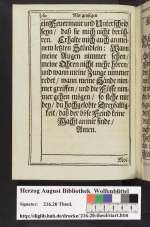 ein Feuermaur und Unterscheid
seyn / daß sie mich nicht berüh-
ren. Erhalte mich auch an mei-
nem letzten Stündlein: Wann
meine Augen nimmer sehen /
meine Ohren nicht mehr hören /
und wann meine Zunge nimmer
redet / wann meine Hände nim-
mer greiffen / und die Füsse nim-
mer gehen mögen / so stehe mir
bey / du hochgelobte Dreyfaltig-
keit / daß der böse Feind keine
Macht an mir finde /
Amen.
Mor-
Herzog August Bibliothek Wolfenbüttel
Signatur: 236.20 Theol.
http://diglib.hab.de/drucke/236-20-theol/start.htm